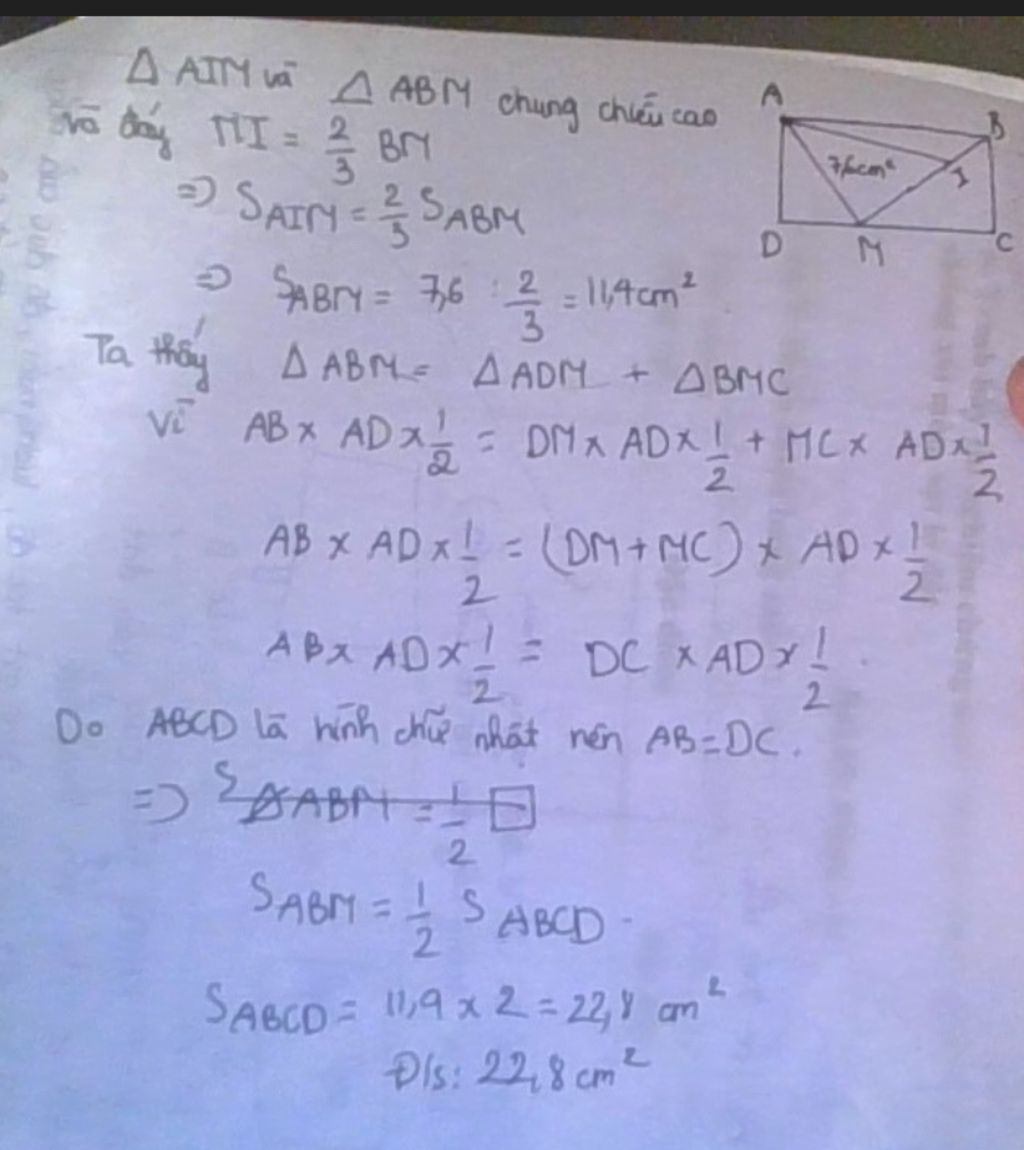 Δ AIM và Δ ABM chung chiều cao
và đáy MI = 2/3 BM
=> S AIM = 2/3 S ABM
=> S ABM = 7,6 : 2/3 = 11,4cm²
A
B
7,6cm²
I
D
M
C
Ta thấy Δ ABM = Δ ADM + Δ BMC
Vì AB x AD x 1/2 = DM x AD x 1/2 + MC x AD x 1/2
AB x AD x 1/2 = (DM + MC) x AD x 1/2
AB x AD x 1/2 = DC x AD x 1/2
Do ABCD là hình chữ nhật nên AB = DC.
=> S Δ ABM = 1/2 □
S ABM = 1/2 S ABCD.
S ABCD = 11,4 x 2 = 22,8 cm²
Đ/s: 22,8 cm²